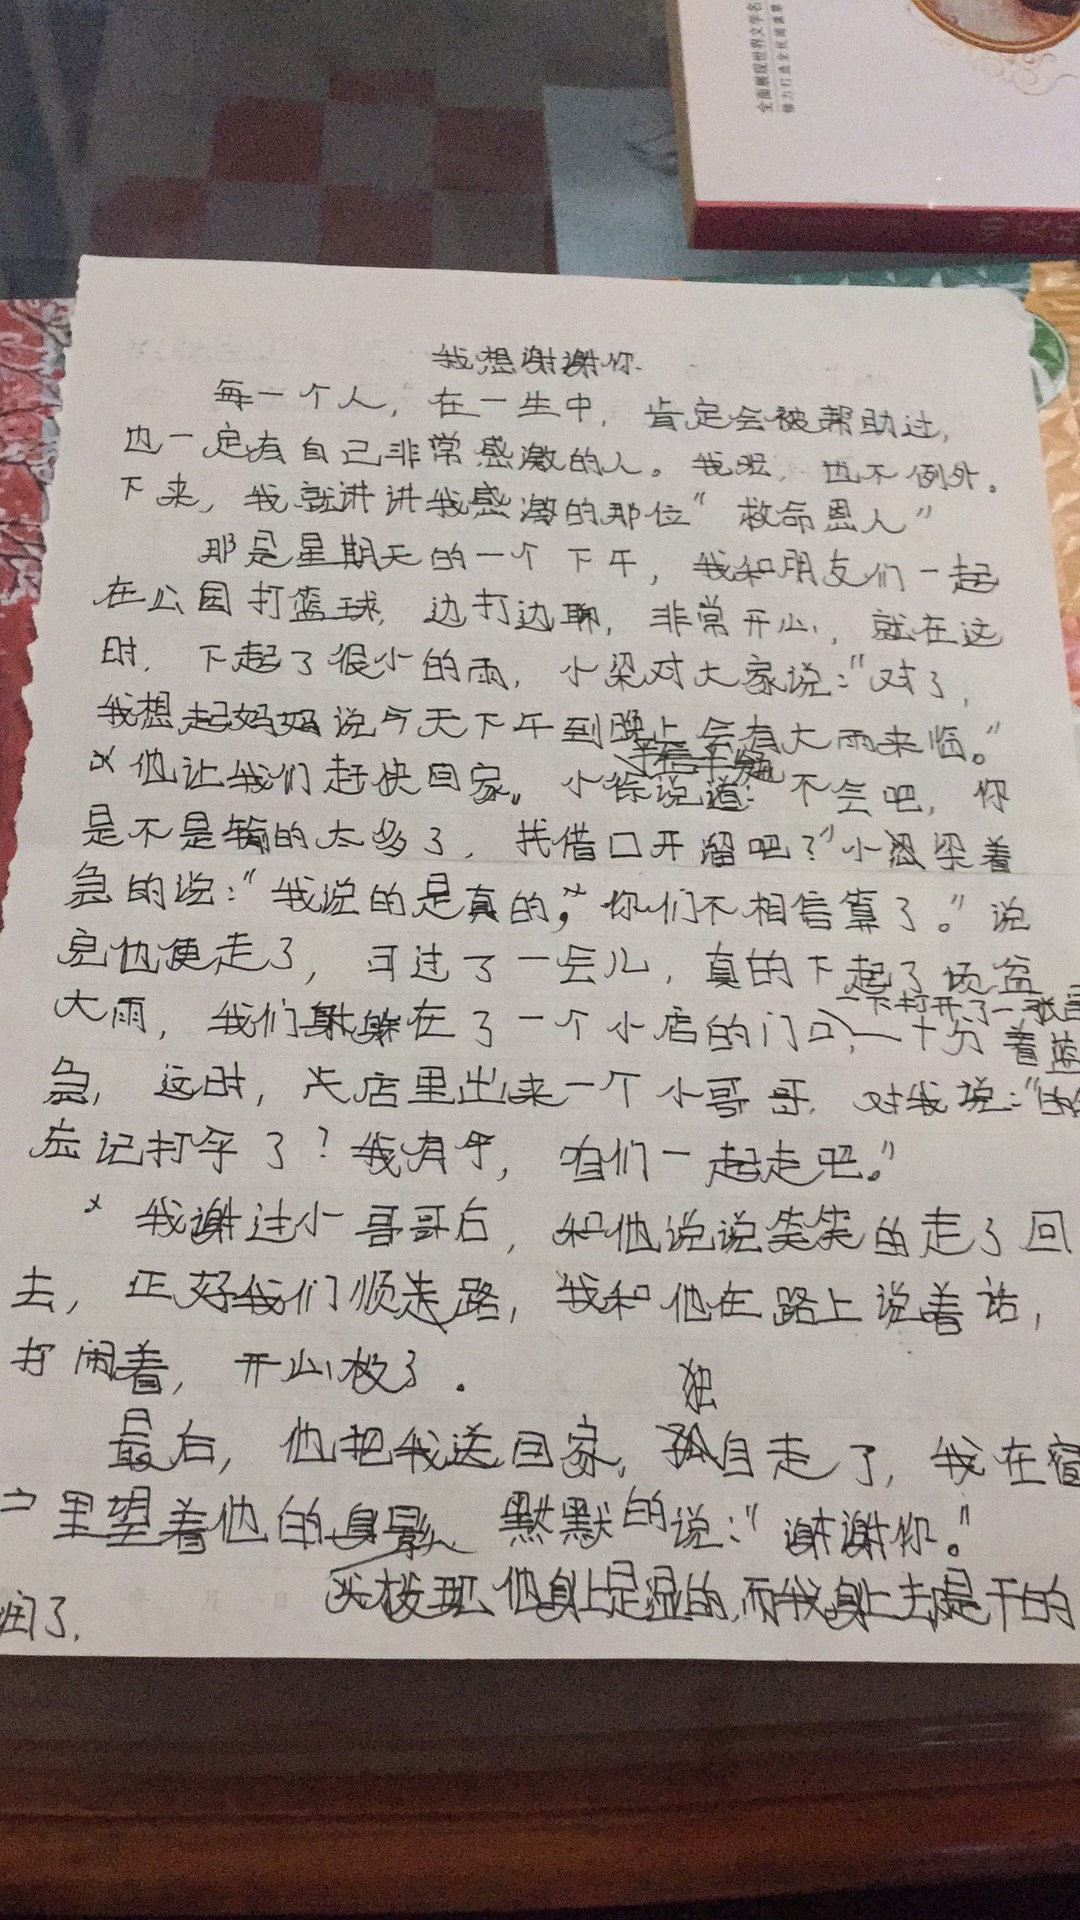 全面展现世界文学名
我想谢谢你
每一个人，在一生中，肯定会被帮助过，
也一定有自己非常感激的人。我呢，也不例外。
下来，我就讲讲我感激的那位“救命恩人”
那是星期天的一个下午，我和朋友们一起
在公园打篮球，边打边聊，非常开心，就在这
时，下起了很小的雨，小梁对大家说：“对了，
我想起妈妈说今天下午到晚上会有大雨来临。”
他让我们赶快回家。小徐说道：不会吧，你
是不是输的太多了，找借口开溜吧？”小梁着
急的说：“我说的是真的，你们不相信算了。”说
完他便走了，可过了一会儿，真的下起了倾盆
一下打开了一张
大雨，我们躲在了一个小店的门口，十分着
急，这时，店里出来一个小哥哥，对我说：“
忘记打伞了？我有伞，咱们一起走吧。”
我谢过小哥哥后，和他说说笑笑的走了回
去，正好我们顺路，我和他在路上说着话，
打闹着，开心极了．
独
最后，他把我送回家，自走了，我在窗
户里望着他的身影，默默的说：“谢谢你。”
他身上是湿的，而我身上去是干的
润了．